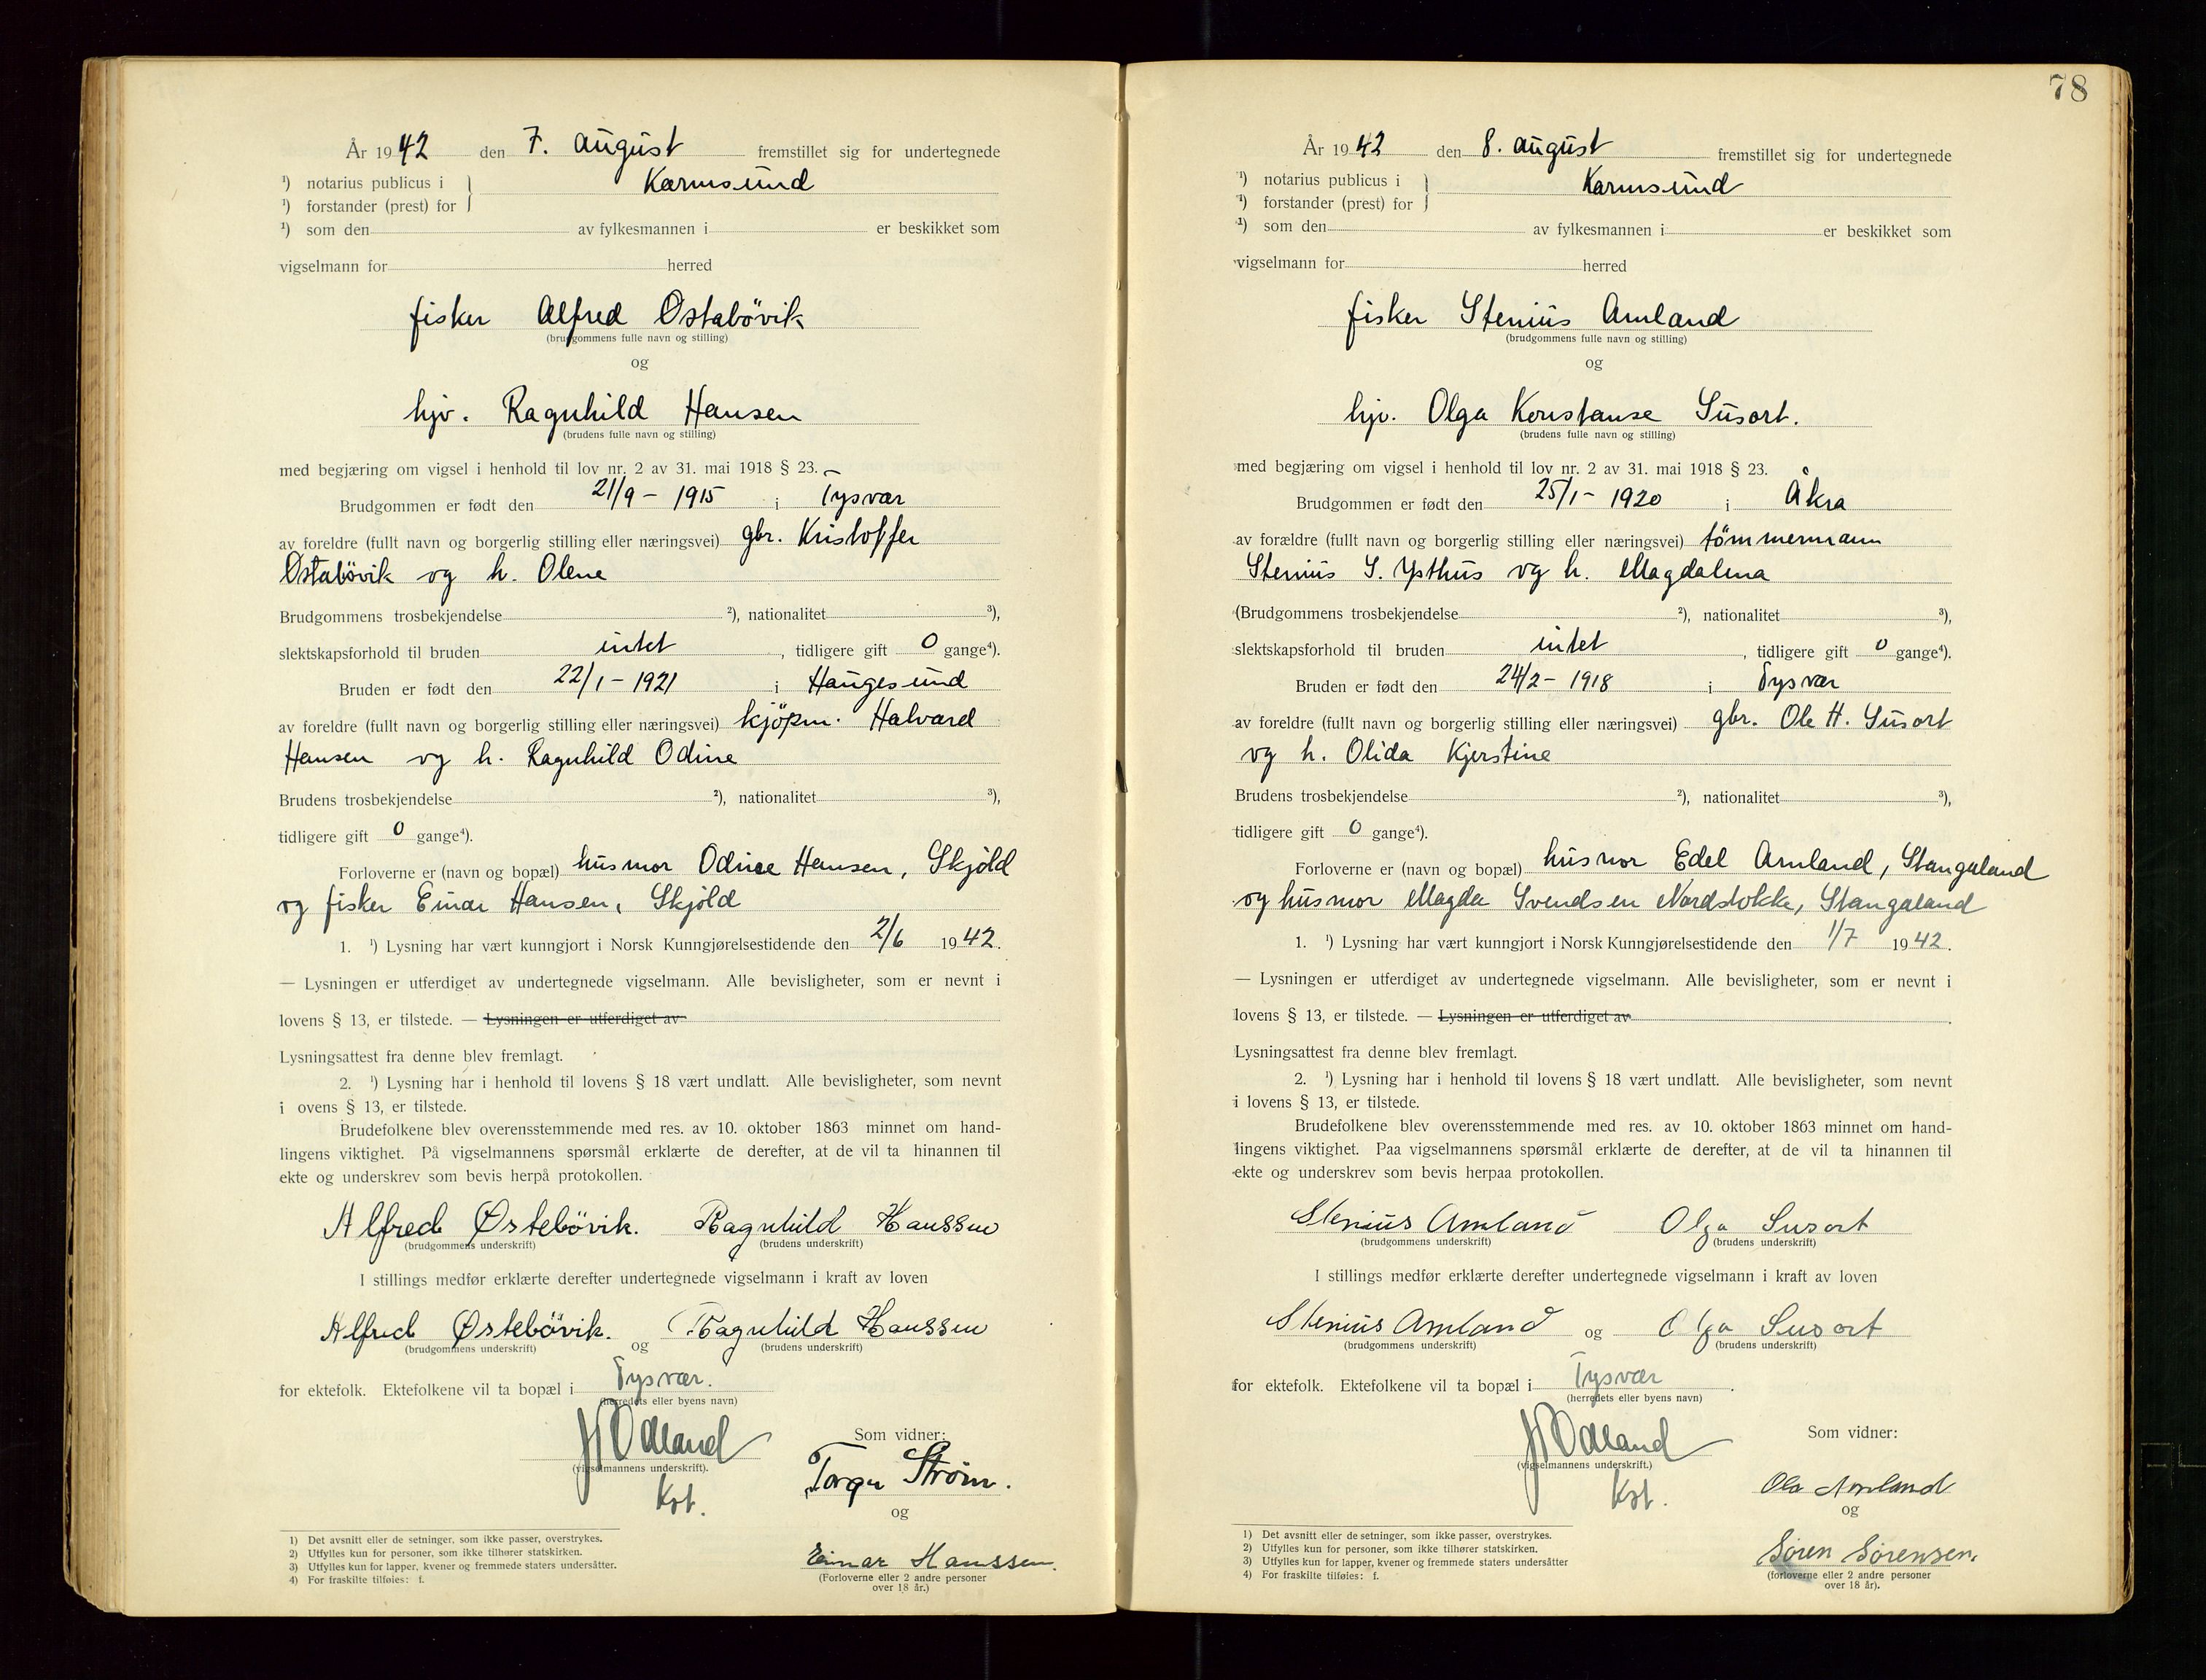 År 1942 den 7. august fremstillet sig for undertegnede
¹) notarius publicus i } Karmsund
¹) forstander (prest) for
¹) som den av fylkesmannen i er beskikket som
vigselmann for herred
fisker Alfred Østabövik
(brudgommens fulle navn og stilling)
og
hjv. Ragnhild Hansen
(brudens fulle navn og stilling)
med begjæring om vigsel i henhold til lov nr. 2 av 31. mai 1918 § 23.
Brudgommen er født den 21/9 - 1915 i Tysvær
av foreldre (fullt navn og borgerlig stilling eller næringsvei) gbr. Kristoffer
Østabövik og h. Olene
Brudgommens trosbekjendelse ²), nationalitet ³),
slektskapsforhold til bruden intet, tidligere gift 0 gange⁴).
Bruden er født den 22/1 - 1921 i Haugesund
av foreldre (fullt navn og borgerlig stilling eller næringsvei) kjöpm. Halvard
Hansen og h. Ragnhild Odine
Brudens trosbekjendelse ²), nationalitet ³),
tidligere gift 0 gange⁴).
Forloverne er (navn og bopæl) husmor Odine Hansen, Skjold
og fisker Einar Hansen, Skjold
1. ¹) Lysning har vært kunngjort i Norsk Kunngjørelsestidende den 2/6 1942.
— Lysningen er utferdiget av undertegnede vigselmann. Alle bevisligheter, som er nevnt i
lovens § 13, er tilstede. — Lysningen er utferdiget av
Lysningsattest fra denne blev fremlagt.
2. ¹) Lysning har i henhold til lovens § 18 vært undlatt. Alle bevisligheter, som nevnt
i ovens § 13, er tilstede.
Brudefolkene blev overensstemmende med res. av 10. oktober 1863 minnet om hand-
lingens viktighet. På vigselmannens spørsmål erklærte de derefter, at de vil ta hinannen til
ekte og underskrev som bevis herpå protokollen.
Alfred Østebövik. Ragnhild Hanssen
(brudgommens underskrift) (brudens underskrift)
I stillings medfør erklærte derefter undertegnede vigselmann i kraft av loven
Alfred Østebövik. og Ragnhild Hanssen
(brudgommens underskrift) (brudens underskrift)
for ektefolk. Ektefolkene vil ta bopæl i Tysvær.
(herredets eller byens navn)
Ødland
(vigselmannens underskrift).
Kst.
Som vidner:
Torger Strøm.
og
Einar Hanssen.
(Forloverne eller 2 andre personer
over 18 år.)
1) Det avsnitt eller de setninger, som ikke passer, overstrykes.
2) Utfylles kun for personer, som ikke tilhører statskirken.
3) Utfylles kun for lapper, kvener og fremmede staters undersåtter.
4) For fraskilte tilføies: f.
78
År 1942 den 8. august fremstillet sig for undertegnede
¹) notarius publicus i } Karmsund
¹) forstander (prest) for
¹) som den av fylkesmannen i er beskikket som
vigselmann for herred
fisker Stenius Amland
(brudgommens fulle navn og stilling)
og
hjv. Olga Konstanse Susort.
(brudens fulle navn og stilling)
med begjæring om vigsel i henhold til lov nr. 2 av 31. mai 1918 § 23.
Brudgommen er født den 25/1 - 1920 i Åkra
av forældre (fullt navn og borgerlig stilling eller næringsvei) tömmermann
Stenius S. Ysthus og h. Magdalena
(Brudgommens trosbekjendelse ²), nationalitet ³),
slektskapsforhold til bruden intet, tidligere gift 0 gange⁴).
Bruden er født den 24/2 - 1918 i Tysvær
av foreldre (fullt navn og borgerlig stilling eller næringsvei) gbr. Ole H. Susort
og h. Olida Kjerstine
Brudens trosbekjendelse ²), nationalitet ³),
tidligere gift 0 gange⁴).
Forloverne er (navn og bopæl) husmor Edel Amland, Stangaland
og husmor Magda Svendsen Nordstokke, Stangaland
1. ¹) Lysning har vært kunngjort i Norsk Kunngjørelsestidende den 1/7 1942.
— Lysningen er utferdiget av undertegnede vigselmann. Alle bevisligheter, som er nevnt i
lovens § 13, er tilstede. — Lysningen er utferdiget av
Lysningsattest fra denne blev fremlagt.
2. ¹) Lysning har i henhold til lovens § 18 vært undlatt. Alle bevisligheter, som nevnt
i lovens § 13, er tilstede.
Brudefolkene blev overensstemmende med res. av 10. oktober 1863 minnet om hand-
lingens viktighet. Paa vigselmannens spørsmål erklærte de derefter, at de vil ta hinannen til
ekte og underskrev som bevis herpaa protokollen.
Stenius Amland Olga Susort
(brudgommens underskrift) (brudens underskrift)
I stillings medfør erklærte derefter undertegnede vigselmann i kraft av loven
Stenius Amland og Olga Susort
(brudgommens underskrift) (brudens underskrift)
for ektefolk. Ektefolkene vil ta bopæl i Tysvær.
(herredets eller byens navn)
Ødland
(vigselmannens underskrift.)
Kst.
Som vidner:
Ola Amland
og
Sören Sörensen.
(forloverne eller 2 andre personer
over 18 år).
1) Det avsnitt eller de setninger, som ikke passer, overstrykes.
2) Utfylles kun for personer, som ikke tilhører statskirken.
3) Utfylles kun for lapper, kvener og fremmede staters undersåtter
4) For fraskilte tilføies: f.